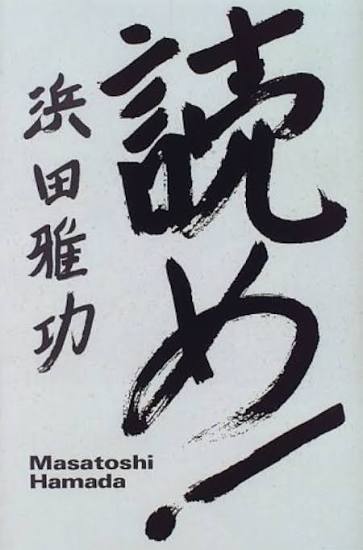 読め!
浜田雅功
Masatoshi
Hamada